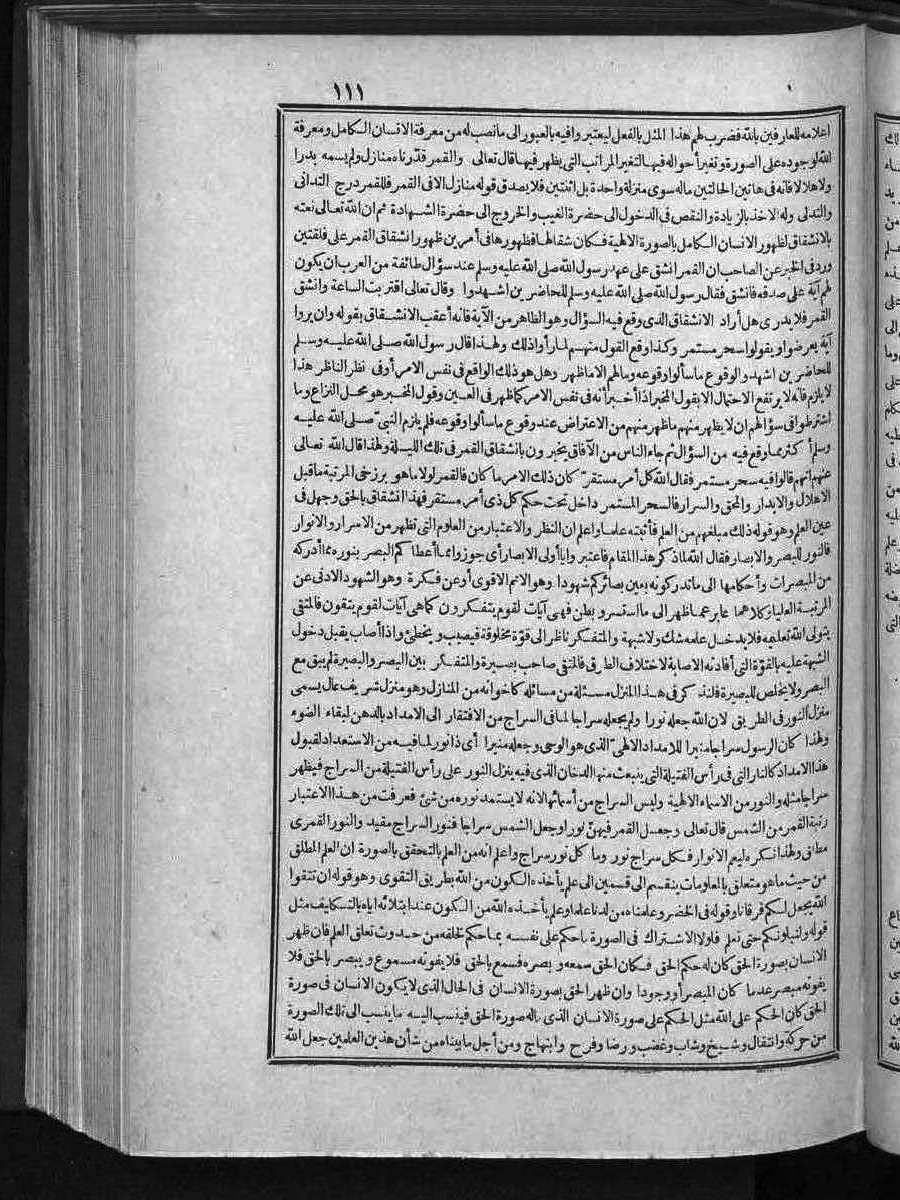 ١١١
اعلامه للعارفين بالله فضرب لهم هذا المثل بالفعل ليعتبروا فيه بالعبور الى ما نصب له من معرفة الانسان الكامل ومعرفة
الله لوجوده على الصورة وتغير أحواله فيها لتغير المراتب التي يظهر فيها قال تعالى والقمر قدّرناه منازل ولم يسمه بدرا
ولا هلالا فانه في هاتين الحالتين ماله سوى منزلة واحدة بل اثنتين فلا يصدق قوله منازل الا في القمر فللقمر درج التداني
والتدلى وله الاخذ بالزيادة والنقص في الدخول الى حضرة الغيب والخروج الى حضرة الشهادة ثم ان الله تعالى نعته
بالانشقاق لظهور الانسان الكامل بالصورة الالهية فكان شقا لها فظهورها في أمرين ظهور انشقاق القمر على فلقتين
ورد في الخبر عن الصاحب ان القمر انشق على عهد رسول الله صلى الله عليه وسلم عند سؤال طائفة من العرب ان يكون
لهم آية على صدقه فانشق فقال رسول الله صلى الله عليه وسلم للحاضرين اشهدوا وقال تعالى اقتربت الساعة وانشق
القمر فلا يدرى هل أراد الانشقاق الذي وقع فيه السؤال وهو الظاهر من الآية فانه أعقب الانشقاق بقوله وان يروا
آية يعرضوا ويقولوا سحر مستمر وكذا وقع القول منهم لما رأوا ذلك ولهذا قال رسول الله صلى الله عليه وسلم
للحاضرين اشهدوا لوقوع ما سألوا وقوعه وما لهم الا ما ظهر وهل هو ذلك الواقع في نفس الامر أو في نظر الناظر هذا
لا يلزم فانه لا يرتفع الاحتمال الا بقول المخبر اذا أخبر أنه في نفس الامر كما ظهر في العين وقول المخبر هو محل النزاع وما
اشترطوا في سؤالهم ان لا يظهر منهم ما ظهر منهم من الاعتراض عند وقوع ما سألوا وقوعه فلم يلزم النبي صلى الله عليه
وسلم أكثر مما وقع فيه من السؤال ثم جاء الناس من الآفاق يخبرون بانشقاق القمر في تلك الليلة ولهذا قال الله تعالى
عنهم انهم قالوا فيه سحر مستمر فقال الله كل أمر مستقر كان ذلك الامر ما كان فالقمر لولا ما هو برزخي المرتبة ما قبل
الاهلال والابدار والمحق والسرار فالسحر المستمر داخل تحت حكم كل ذي أمر مستقر فهذا انشقاق بالحق وجهل في
عين العلم وهو قوله ذلك مبلغهم من العلم فأثبته علما واعلم ان النظر والاعتبار من العلوم التي تظهر من الاسرار والانوار
فالنور للبصر والابصار فقال الله لما ذكر هذا المقام فاعتبروا يا أولى الابصار أي جوزوا مما أعطاكم البصر بنوره مما أدركه
من المبصرات وأحكامها الى ما تدركونه بعين بصائركم شهودا وهو الاتم الاقوى أو عن فكرة وهو الشهود الادنى عن
المرتبة العليا وكلاهما عابر عما ظهر الى ما استسر وبطن فهي آيات لقوم يتفكرون كما هي آيات لقوم يتقون فالمتقى
يتولى الله تعليمه فلا يدخل علمه شك ولا شبهة والمتفكر ناظر الى قوّة مخلوقة فيصيب ويخطئ واذا أصاب يقبل دخول
الشبهة عليه بالقوّة التي أفادته الاصابة لاختلاف الطرق فالمتقى صاحب بصيرة والمتفكر بين البصر والبصيرة لم يبق مع
البصر ولا يخلص للبصيرة فلنذكر في هذا المنزل مسئلة من مسائله كاخوانه من المنازل وهو منزل شريف عال يسمى
منزل النور في الطريق لان الله جعله نورا ولم يجعله سراجا لما في السراج من الافتقار الى الامداد بالدهن لبقاء الضوء
ولهذا كان الرسول سراجا منيرا للامداد الالهي الذي هو الوحي وجعله منيرا أي ذا نور لما فيه من الاستعداد لقبول
هذا الامداد كالنار التي في رأس الفتيلة التي ينبعث منها الدخان الذي فيه ينزل النور على رأس الفتيلة من السراج فيظهر
سراجا مثله والنور من الاسماء الالهية وليس السراج من أسمائها لانه لا يستمد نوره من شئ فعرفت من هذا الاعتبار
رتبة القمر من الشمس قال تعالى وجعل القمر فيهن نورا وجعل الشمس سراجا فنور السراج مقيد والنور القمري
مطلق ولهذا نكره ليعم الانوار فكل سراج نور وما كل نور سراج واعلم انه من العلم بالتحقق بالصورة ان العلم المطلق
من حيث ما هو متعلق بالمعلومات ينقسم الى قسمين الى علم يأخذه الكون من الله بطريق التقوى وهو قوله ان تتقوا
الله يجعل لكم فرقانا وقوله في الخضر وعلمناه من لدنا علما وعلم يأخذه الله من الكون عند ابتلائه اياه بالتكليف مثل
قوله ولنبلونكم حتى نعلم فلولا الاشتراك في الصورة ما حكم على نفسه بما حكم لخلقه من حدوث تعلق العلم فان ظهر
الانسان بصورة الحق كان له حكم الحق فكان الحق سمعه وبصره فسمع بالحق فلا يفوته مسموع ويبصر بالحق فلا
يفوته مبصر عدما كان المبصر أو وجودا وان ظهر الحق بصورة الانسان في الحال الذي لا يكون الانسان في صورة
الحق كان الحكم على الله مثل الحكم على صورة الانسان الذي ماله صورة الحق فينسب اليه ما ينسب الى تلك الصورة
من حركة وانتقال وشيخ وشاب وغضب ورضا وفرح وابتهاج ومن أجل ما بيناه من شأن هذين العلمين جعل الله